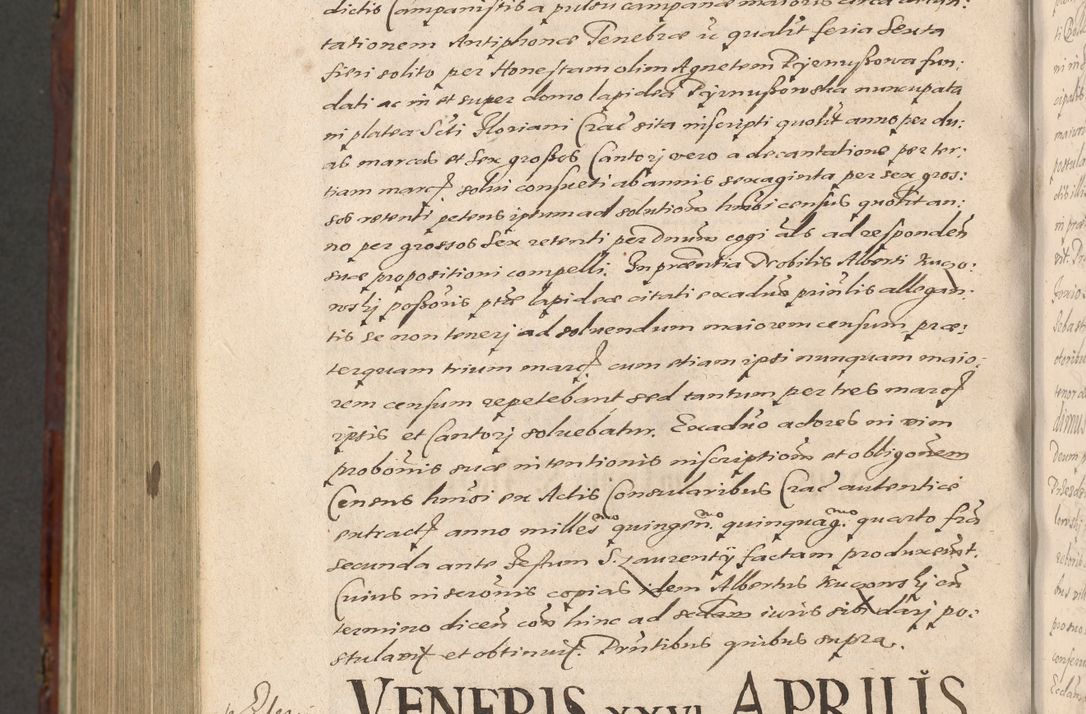 dictis Campanistis a pulsu campanæ maioris circa
tationem Antiphonæ Tenebræ ut qualit feria Sexta
fieri solito per Honestam olim Agnetem Pzemußowa fun:
dati ac in et super domo lapidea Pzemußowska nuncupata
in platea Scti Floriani Crac sita inscripti quolit anno per du:
as marcas et sex großos Cantorj vero a decantatione per ter:
tiam marcȩ solui consueti ab annis sexaginta per sex gros:
sos retenti petens iptum ad solutioem hmoi census quolit an:
no per grossos Sex retenti per Dnum cogi als ad responden
suæ propositioni compelli. In præsentia Nobilis Alberti Kuczo:
wskj poßoris ptæ lapideæ citati ex aduo priulis allegan:
tis se non tenerj ad soluendum maiorem censum præ:
terquam trium marcȩ cum etiam ipsi nunquam maio:
rem censum repetebant sed tantum per tres marcȩ
ipsis et Cantorj soluebatur. Ex aduo actores in vim
probonis suæ intentionis inscriptioem et obligonem
Census hmoi ex Actis Consularibus Crac autenticè
extractȩ anno milles quingen.mo quinquag.mo quarto fra
secunda ante Festum S. Laurentij factam produxerunt.
Cuius inseronis copias idem Albertus Kuczowskj cu
termino dicen con hinc ad sedam iuris sibi darj po:
stulavit et obtinuit. Pntibus quibus supra.
VENERIS XXVI APRILIS